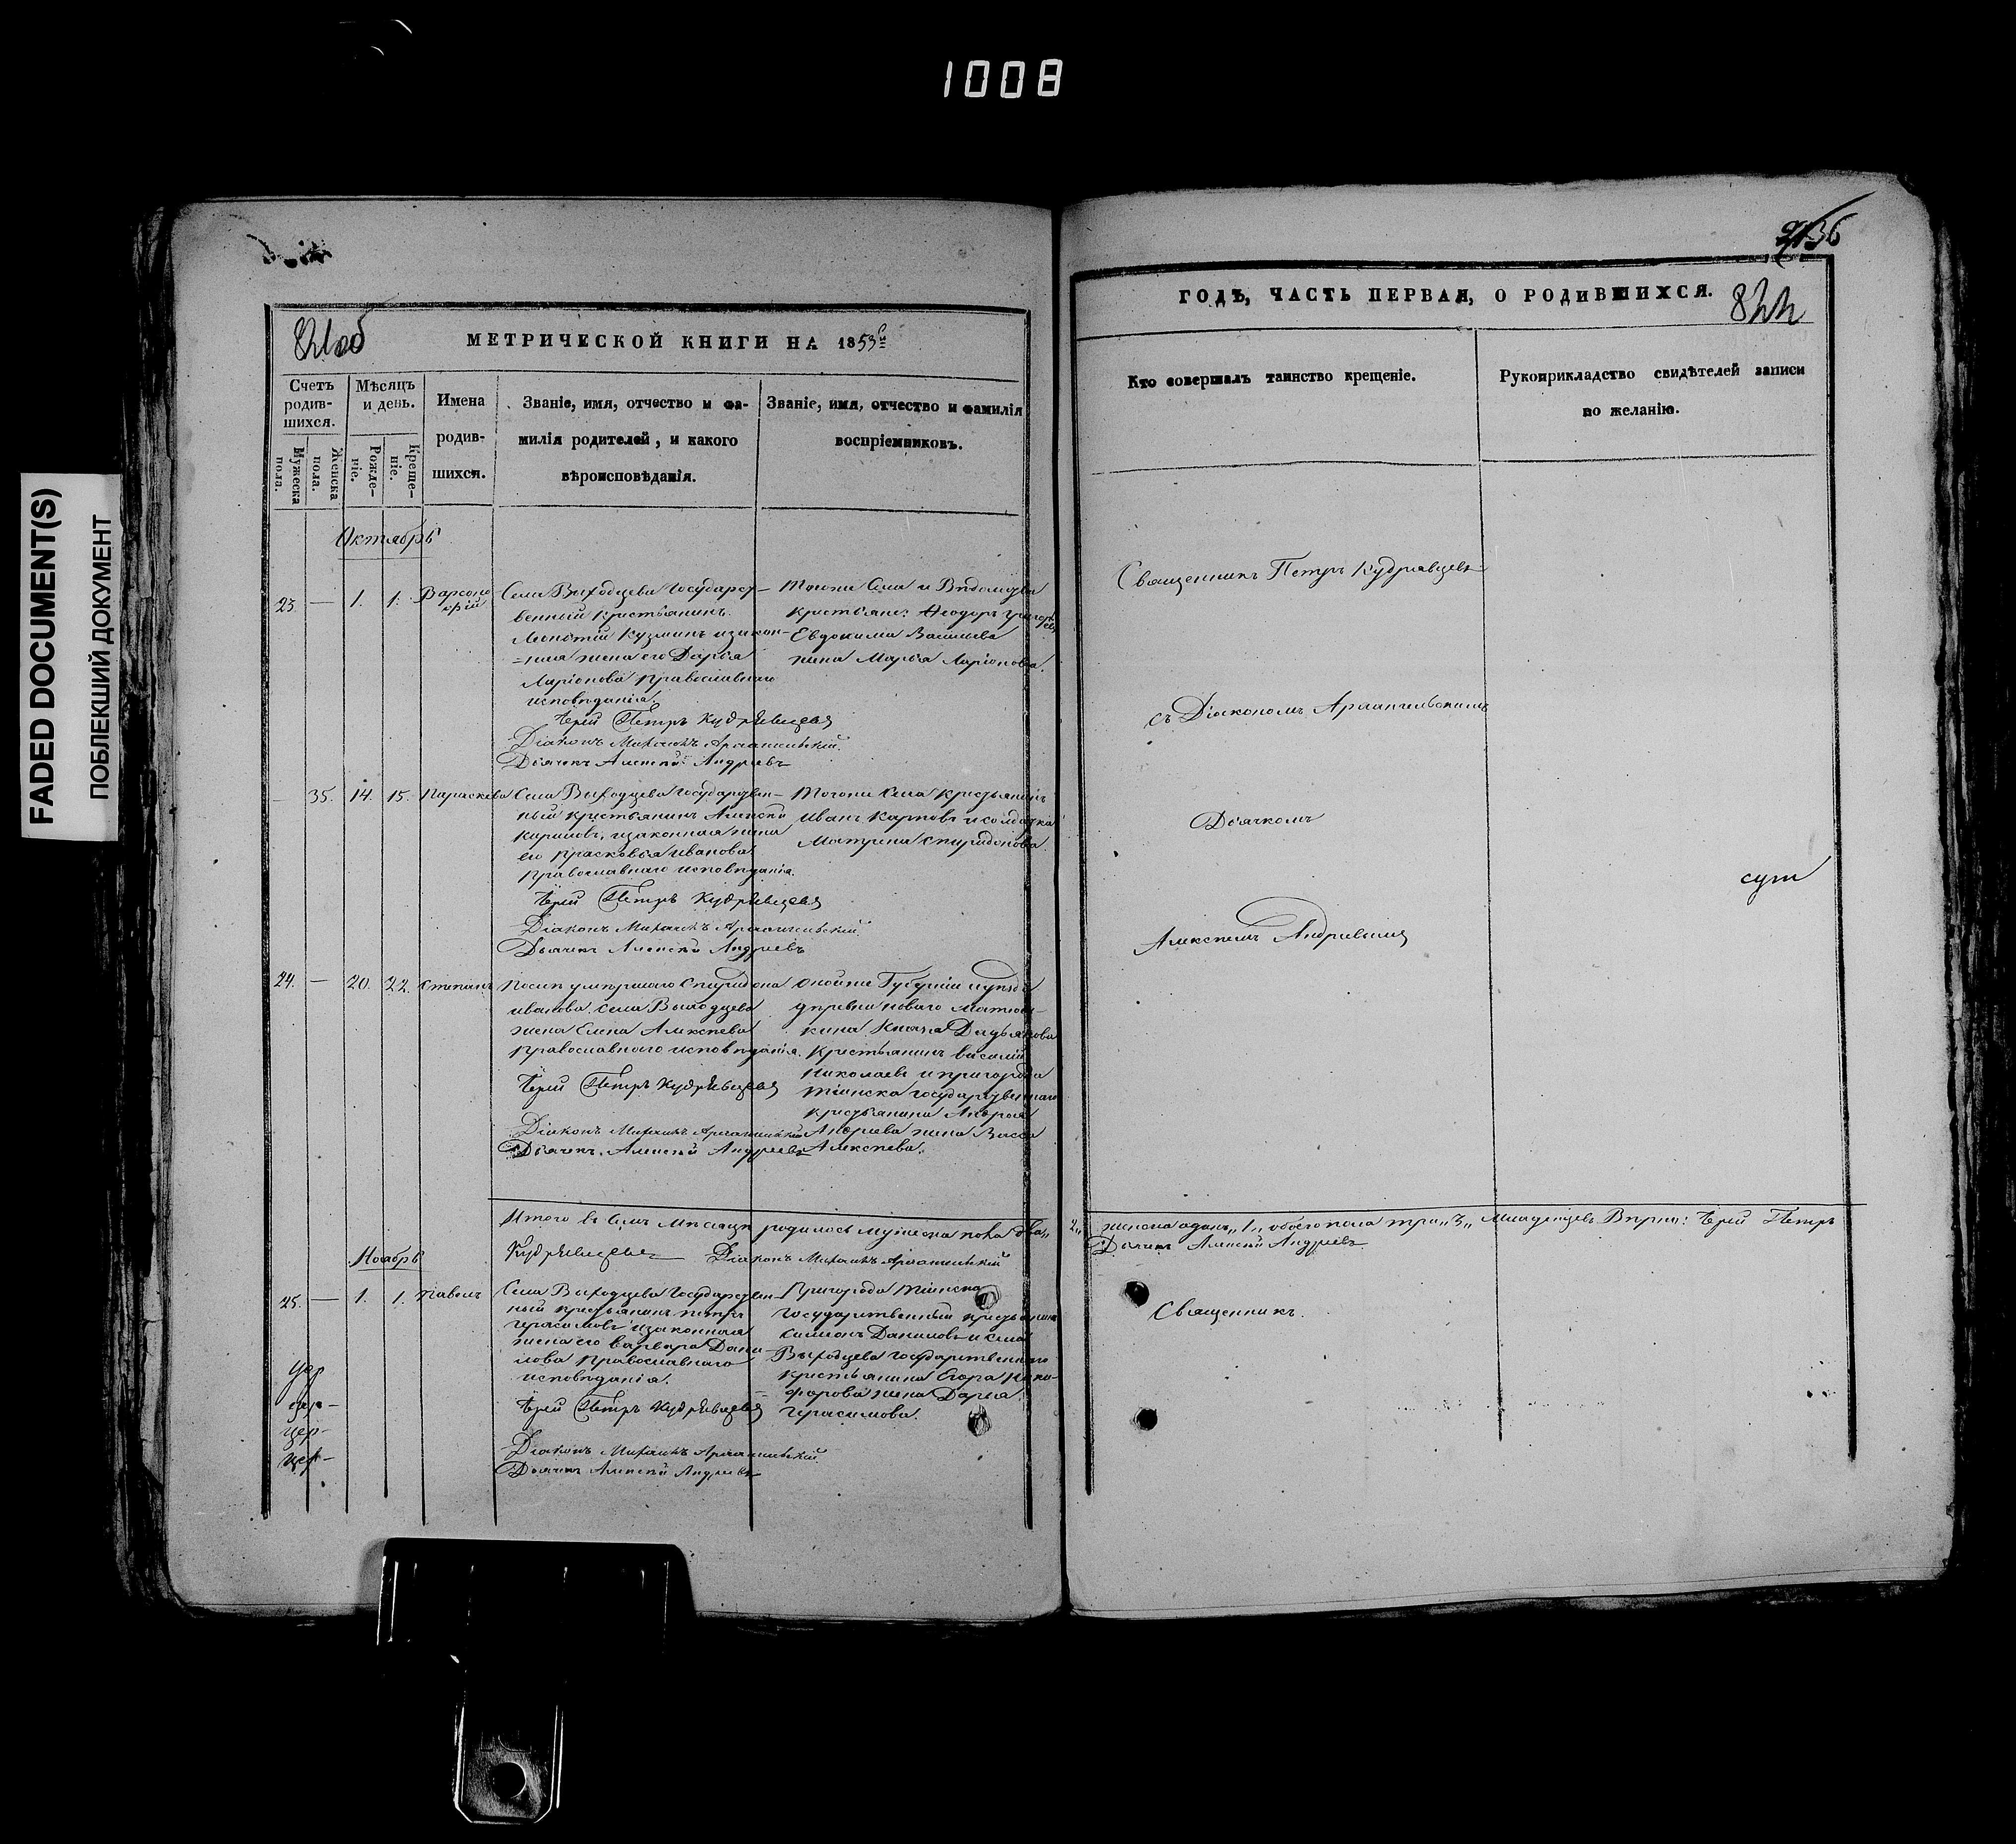 1008
FADED DOCUMENT(S)
ПОБЛЕКШИЙ ДОКУМЕНТ
821об
МЕТРИЧЕСКОЙ КНИГИ НА 1853й
Счетъ родившихся.
Мужеска пола.
Женска пола.
Мѣсяцъ и день.
Рожденіе.
Крещеніе.
Имена
родив-
шихся.
Званіе, имя, отчество и фа-
милія родителей, и какого
вѣроисповѣданія.
Званіе, имя, отчество и фамилія
воспріемниковъ.
Октябрь
23. — 1. 1. Варсоно
фій
Села Выходцева Государст-
венный крестьянинъ
Леонтій Кузминъ и закон-
ная жена его Дарья
Ларіонова православнаго
исповѣданія.
Іерей Петръ Кудрявцевъ
Діаконъ Михаилъ Архангельскій
Дьячекъ Алексѣй Андреевъ
Тогоже Села и
крестьяне: Ѳеодоръ Григорь
евъ
Евдокима Васильева
жена Марья Ларіонова.
— 35. 14. 15. Параскева
Села Выходцева Государствен-
ный крестьянинъ Алексѣй
и законная жена
его Прасковья Иванова
православнаго исповѣданія.
Іерей Петръ Кудрявцевъ
Діаконъ Михаилъ Архангельскій
Дьячекъ Алексѣй Андреевъ
Тогоже Села крестьянинъ
Иванъ Карповъ и солдатка
Матрена Спиридонова.
24. — 20. 22. Степанъ
Послѣ умершаго Спиридона
Иванова села Выходцева
жена Елена Алексѣева
православнаго исповѣданія.
Іерей Петръ Кудрявцевъ
Діаконъ Михаилъ Архангельскій
Дьячекъ Алексѣй Андреевъ
Губерніи и уѣзда
деревни Новаго Матюш-
кина Князя Дадьянова
крестьянинъ Василій
Николаевъ и пригорода
Тіинска государственнаго
крестьянина Андрея
Андреева жена Васса
Алексѣева.
Итого въ семъ мѣсяцѣ родилось мужеска пола два„
Кудрявцевъ Діаконъ Михаилъ Архангельскій
Ноябрь
25. — 1. 1. Павелъ
Села Выходцева Государствен-
ный крестьянинъ Петръ
Герасимовъ и законная
жена его Варвара Дани-
лова православнаго
исповѣданія.
Іерей Петръ Кудрявцевъ
Діаконъ Михаилъ Архангельскій
Дьячекъ Алексѣй Андреевъ
Пригорода Тіинска
Государственный крестьянинъ
Симеонъ Даниловъ и села
Выходцева государственнаго
крестьянина Егора Ники-
форова жена Дарья
Герасимова.
цер-
цер-
цер-
ГОДЪ, ЧАСТЬ ПЕРВАЯ, О РОДИВШИХСЯ.
822
Кто совершалъ таинство крещеніе.
Рукоприкладство свидѣтелей записи
по желанію.
Священникъ Петръ Кудрявцевъ
съ Діакономъ Архангельскимъ
Дьячкомъ
Алексѣемъ Андреевымъ
2„ женска одинъ„ 1„ обоего пола три„ 3„ младенцевъ Іерей Петръ
Дьячекъ Алексѣй Андреевъ
Священникъ.